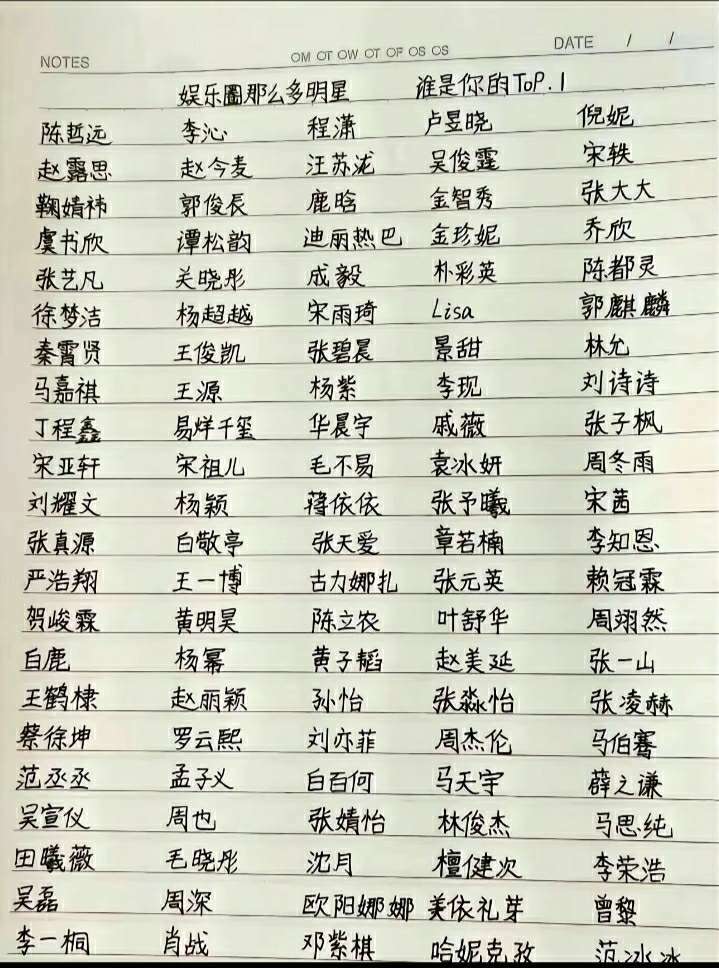 NOTES OM OT OW OT OF OS OS DATE / /
娱乐圈那么多明星 谁是你的ToP.1
陈哲远 李沁 程潇 卢昱晓 倪妮
赵露思 赵今麦 汪苏泷 吴俊霆 宋轶
鞠婧祎 郭俊辰 鹿晗 金智秀 张大大
虞书欣 谭松韵 迪丽热巴 金珍妮 乔欣
张艺凡 关晓彤 成毅 朴彩英 陈都灵
徐梦洁 杨超越 宋雨琦 Lisa 郭麒麟
秦霄贤 王俊凯 张碧晨 景甜 林允
马嘉祺 王源 杨紫 李现 刘诗诗
丁程鑫 易烊千玺 华晨宇 戚薇 张子枫
宋亚轩 宋祖儿 毛不易 袁冰妍 周冬雨
刘耀文 杨颖 蒋依依 张予曦 宋茜
张真源 白敬亭 张天爱 章若楠 李知恩
严浩翔 王一博 古力娜扎 张元英 赖冠霖
贺峻霖 黄明昊 陈立农 叶舒华 周翊然
白鹿 杨幂 黄子韬 赵美延 张一山
王鹤棣 赵丽颖 孙怡 张淼怡 张凌赫
蔡徐坤 罗云熙 刘亦菲 周杰伦 马伯骞
范丞丞 孟子义 白百何 马天宇 薛之谦
吴宣仪 周也 张婧怡 林俊杰 马思纯
田曦薇 毛晓彤 沈月 檀健次 李荣浩
吴磊 周深 欧阳娜娜 美依礼芽 曾黎
李一桐 肖战 邓紫棋 哈妮克孜 范冰冰